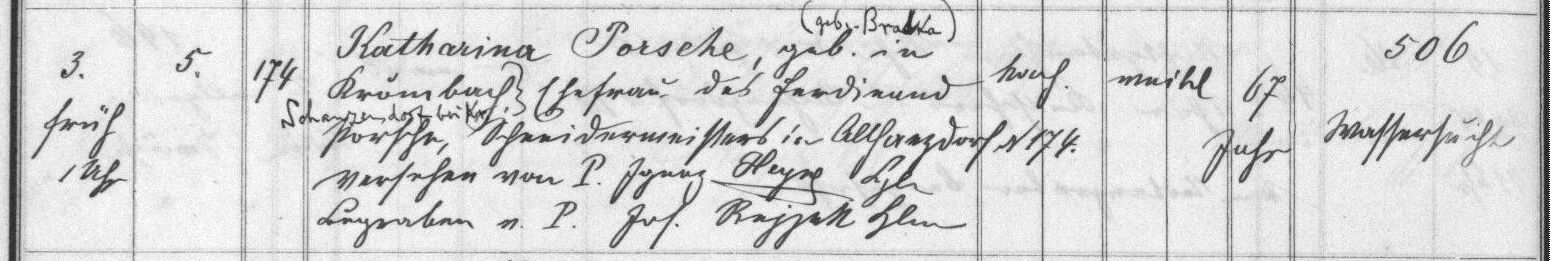 (geb. Bratka)
3. 5. 174 Katharina Porsche, geb. in 506
früh Krombach Ehefrau des Ferdinand kath. weibl 67
Schanzendorf bei Kr.
1 Uhr Porsche, Schneidermeisters in Altharzdorf N 174. Jahr Wassersucht
versehen von P. Ignaz Kpln
begraben v. P. Jos. Kpln